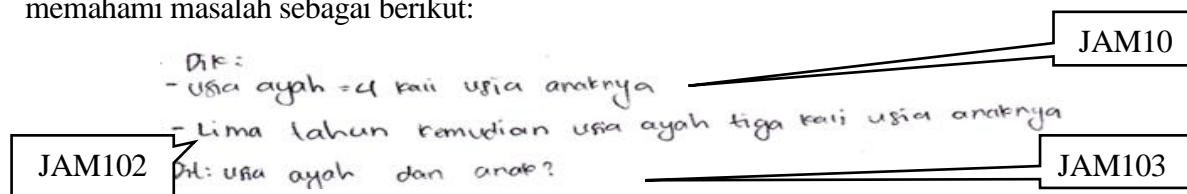 memahami masalah sebagai berikut:
JAM10
Dik:
- usia ayah = 4 kali usia anaknya
- Lima tahun kemudian usia ayah tiga kali usia anaknya
JAM102
Dit: usia ayah dan anak?
JAM103